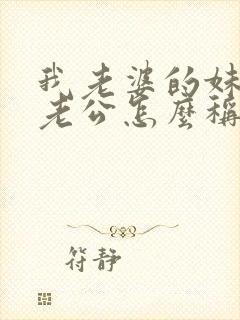 我老婆的妹
老公怎麼稱
符靜